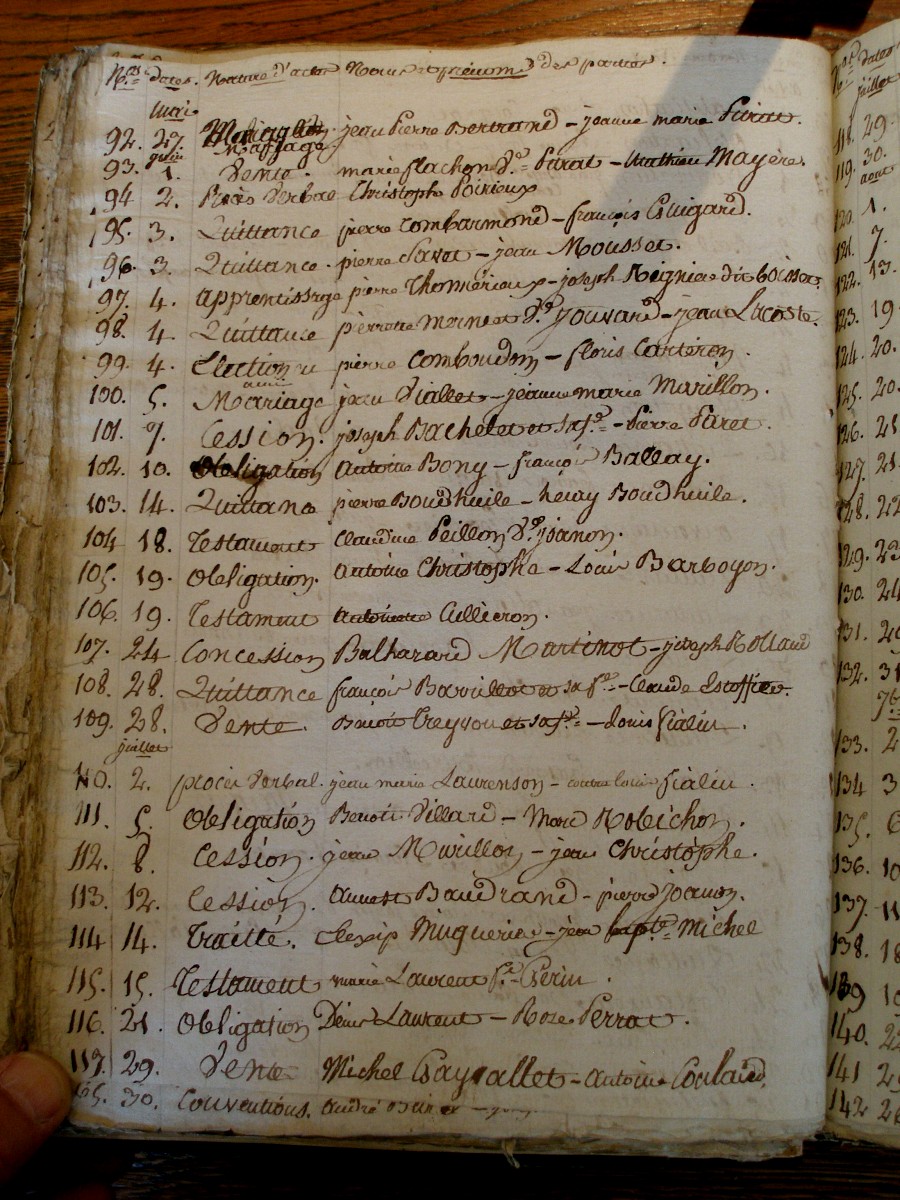 Nos dates. Nature d'actes Noms et prénoms des parties.
mai
92. 27. Mariage jean Pierre Bertrand - jeanne marie Parat.
juin
93. 1. Vente. marie flachon Ve. Parat - Mathieu Mayère.
94 2. Procès Verbal Christophe Poirieux
95. 3. Quittance pierre Combarmond - françois Guigard.
96. 3. Quittance. pierre Savat - jean Mousset.
97. 4. apprentissage pierre Thonnérieux - joseph
98. 4. Quittance pierrette Ve. jouvard - jean Lacoste.
99. 4. Election pierre Comboudon - floris Carteron.
100. 5. Mariage jean Viallet - jeanne marie Marillon.
101. 7. Cession. joseph Bachelet et sa fe. - Pierre Paret.
102. 10. Obligation Antoine Bony - françois Ballay.
103. 14. Quittance pierre Boudhuile - henry Boudhuile.
104 18. Testament Claudine Peillon Ve. joanon.
105. 19. Obligation. Antoine Christophe - Louis Barboyon.
106. 19. Testament Antoinette Cellieron.
107. 24 Concession Balhazard Martinot - joseph Rolland
108. 28. Quittance françois Barvillot et sa fe. - Claude
109. 28. Vente. Benoit Creyson et sa fe. - Louis fialin.
juillet
110. 2. procès Verbal. jean marie Laurenson - contre Louis fialin.
111. 5. Obligation Benoit Villard - Marc Robichon.
112. 8 Cession. jean Murillon - jean Christophe.
113. 12. Cession. Annet Baudrand - pierre joanon.
114 14. Traitté. - jean bapte. Michel
115. 15. Testament marie Laurent fe. Perin.
116. 21 Obligation Denis Laurent - Roze Perrat.
117. 29. Vente Michel - Antoine Coulaud.
30. Conventions. andré
Nos dates
juillet
118. 29.
119. 30.
aout
120. 1.
121. 7.
122. 13.
123. 19
124. 20.
125. 20.
126. 21
127. 21.
128. 22
129. 23
130. 24
131.
132. 31
7bre
133. 2
134 3
135. 6
136. 10
137. 11
138. 18
139
140.
141
142